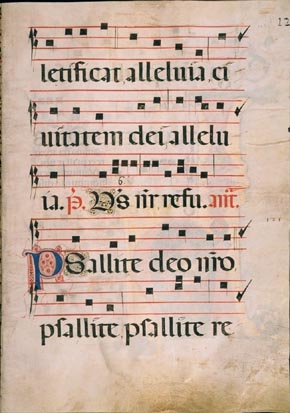 12
letificat alleluia ci
uitatem dei allelu
ia. p̄. Ds nr̄ refu. añt.
Psallite deo nr̄o
psallite psallite re